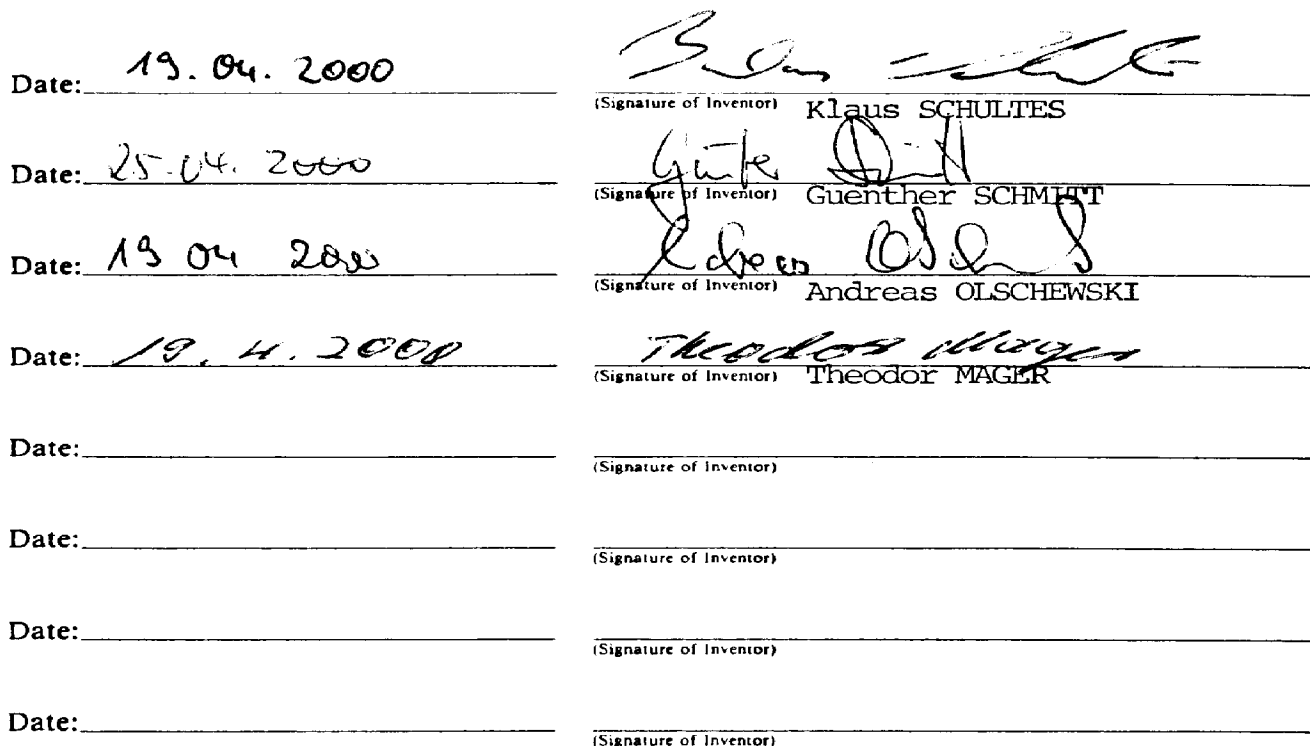 Date: 19. 04. 2000
(Signature of Inventor) Klaus SCHULTES
Date: 25.04. 2000 Günter
(Signature of Inventor) Guenther SCHMITT
Date: 19 04 2000 Andreas
(Signature of Inventor) Andreas OLSCHEWSKI
Date: 19. 4. 2000 Theodor Mager
(Signature of Inventor) Theodor MAGER
Date:
(Signature of Inventor)
Date:
(Signature of Inventor)
Date:
(Signature of Inventor)
Date:
(Signature of Inventor)